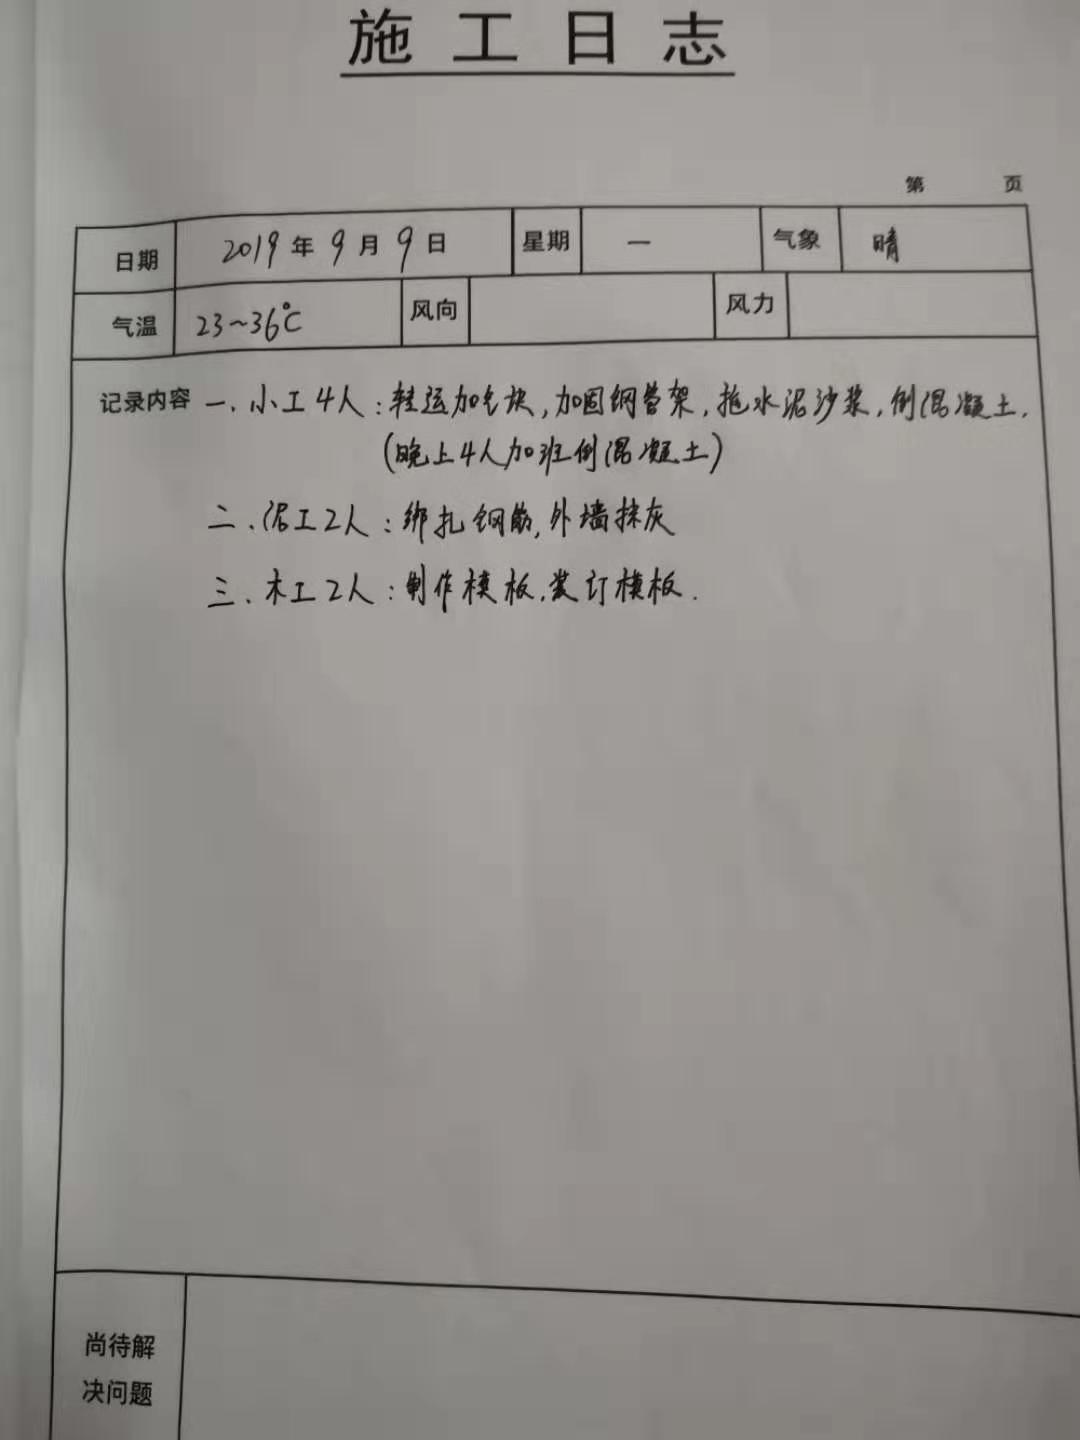 施工日志
第 页
日期 2019年9月9日 星期 一 气象 晴
气温 23~36℃ 风向 风力
记录内容 一.小工4人:转运加气块,加固钢管架,拖水泥沙浆,倒混凝土.
(晚上4人加班倒混凝土)
二.泥工2人:绑扎钢筋,外墙抹灰
三.木工2人:制作模板,装订模板.
尚待解
决问题